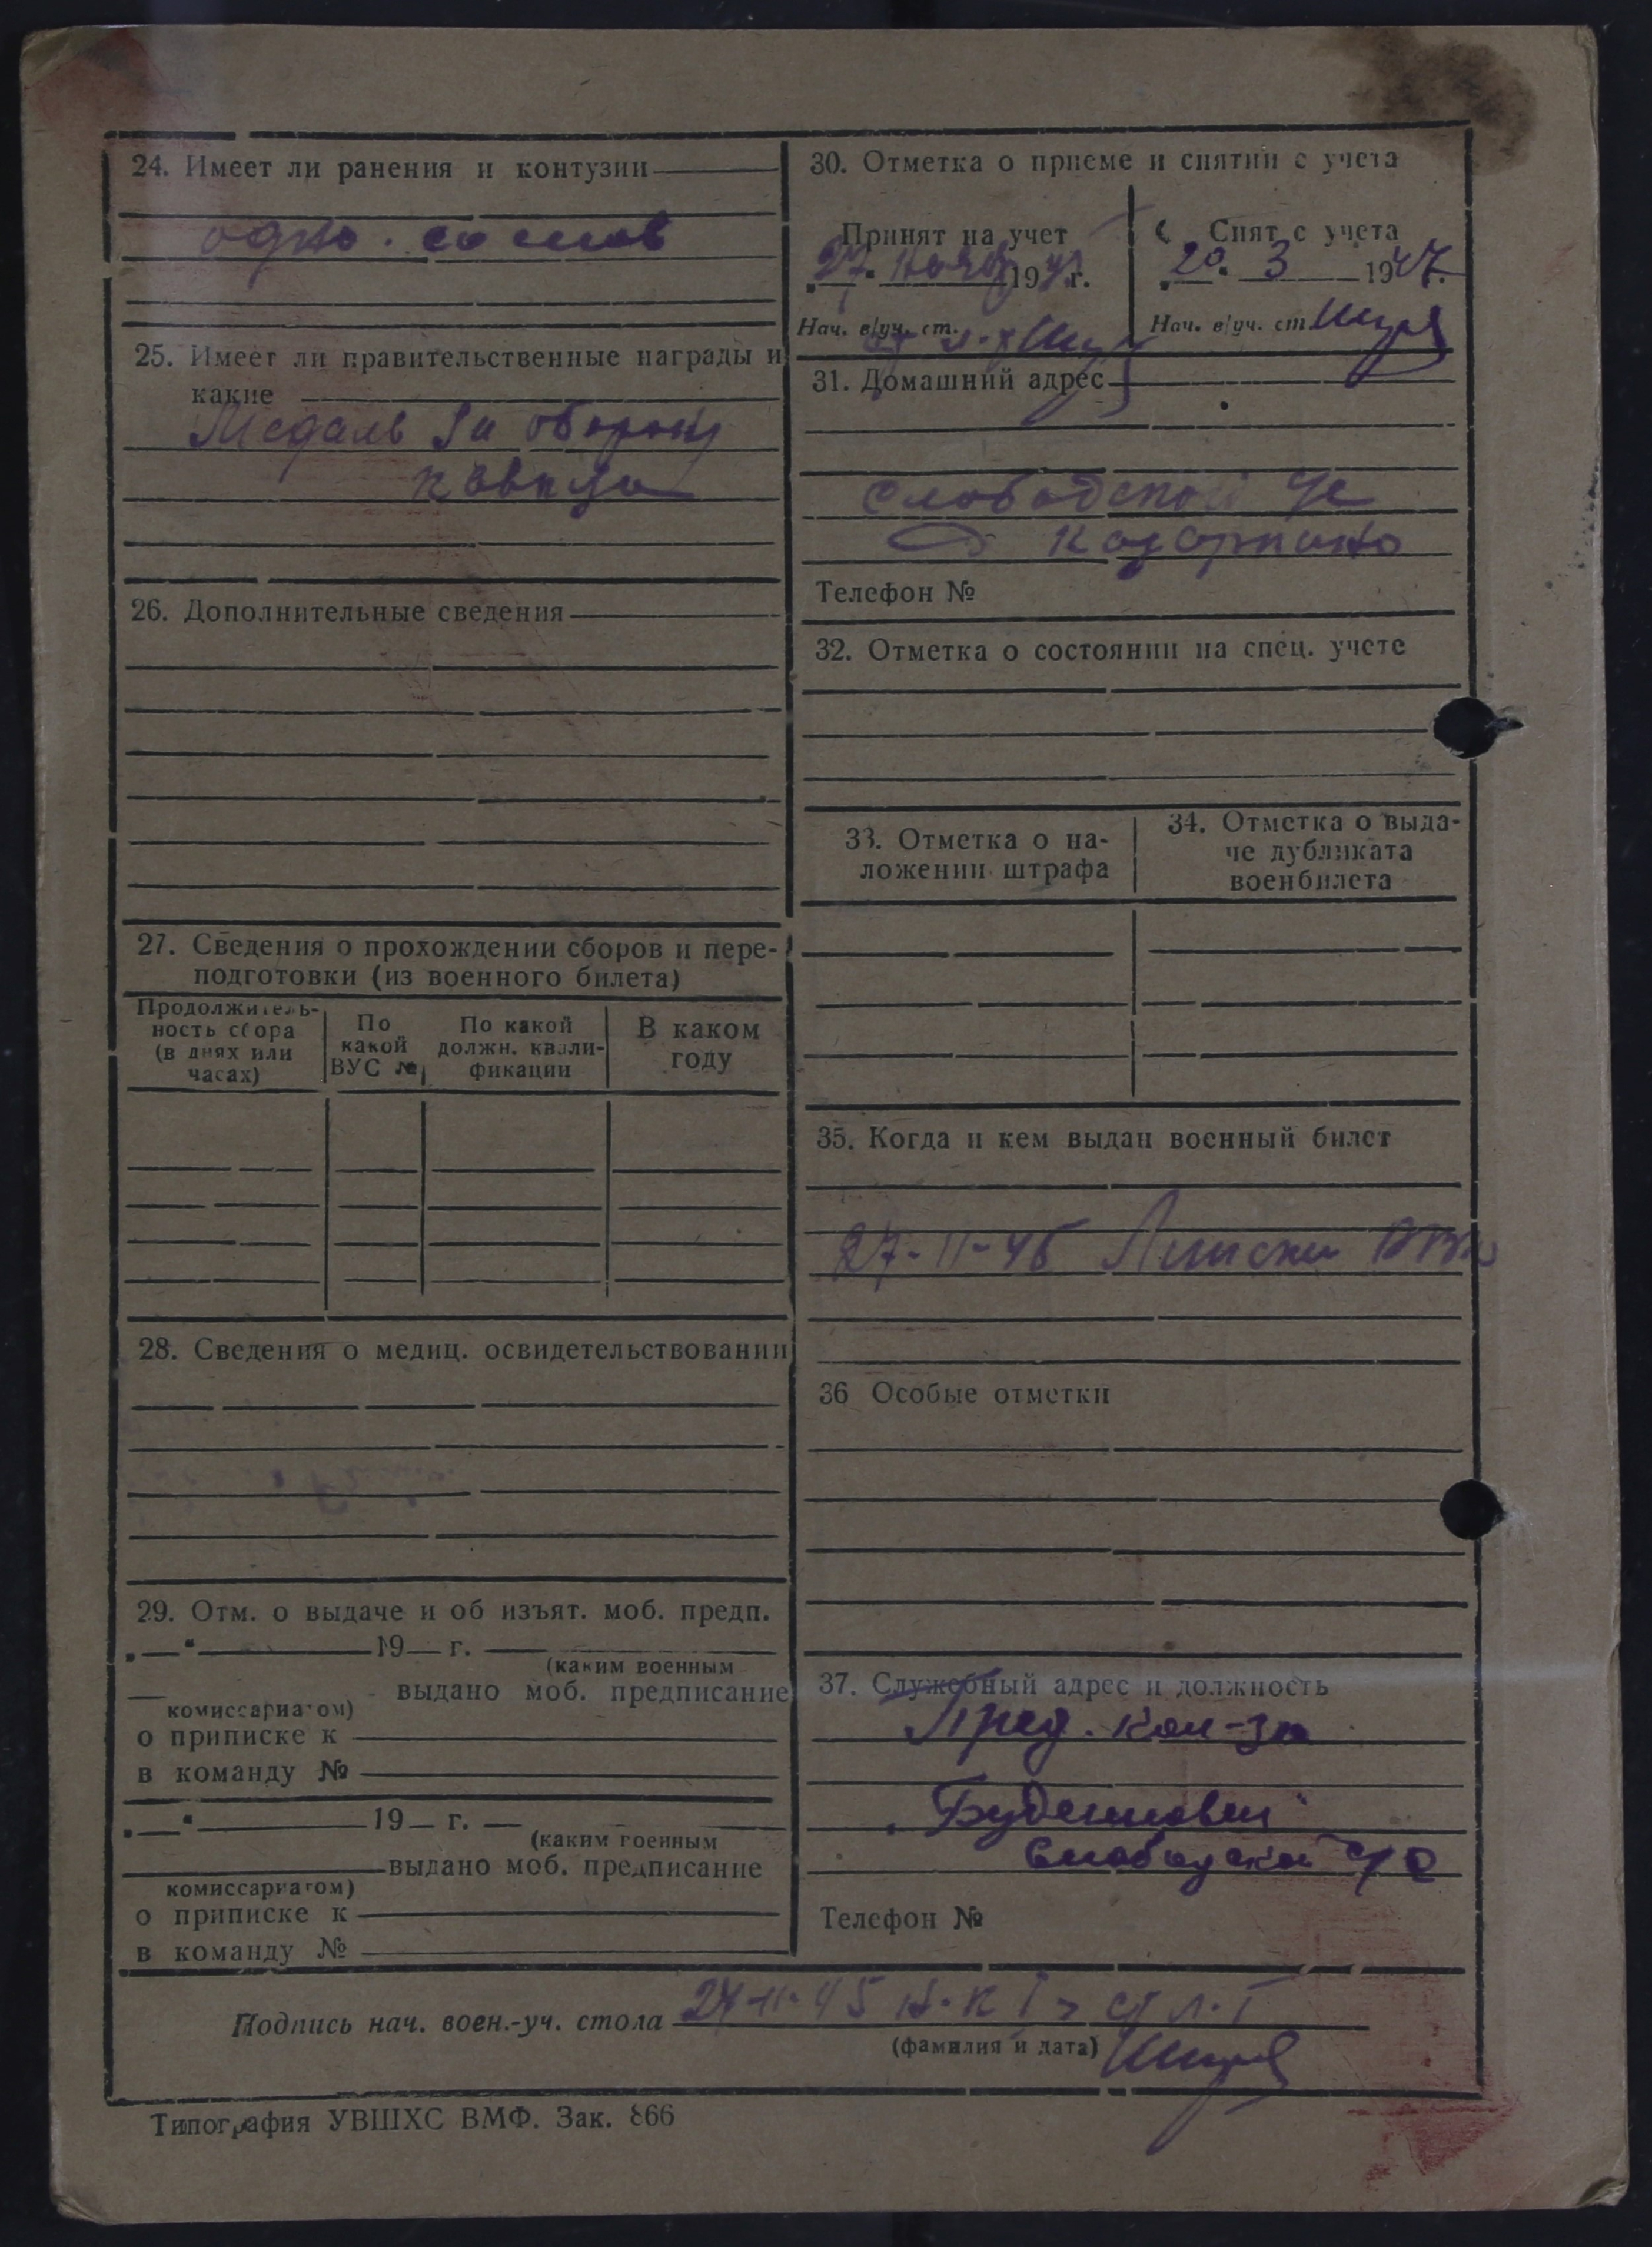 24. Имеет ли ранения и контузии
одно
25. Имеет ли правительственные награды и
какие
Медаль За оборону
кавказа
26. Дополнительные сведения
27. Сведения о прохождении сборов и пере-
подготовки (из военного билета)
Продолжитель-
ность сбора
(в днях или
часах)
По
какой
ВУС №
По какой
должн. квали-
фикации
В каком
году
28. Сведения о медиц. освидетельствовании
29. Отм. о выдаче и об изъят. моб. предп.
„ “ 19 г.
(каким военным
комиссариатом)
выдано моб. предписание
о приписке к
в команду №
„ “ 19 г.
(каким военным
выдано моб. предписание
комиссариатом)
о приписке к
в команду №
30. Отметка о приеме и снятии с учета
Принят на учет
27. 19 г.
Нач. в/уч. ст.
Снят с учета
20. 3 1947.
Нач. в/уч. ст.
31. Домашний адрес
Слободской
Телефон №
32. Отметка о состоянии на спец. учете
33. Отметка о на-
ложении штрафа
34. Отметка о выда-
че дубликата
военбилета
35. Когда и кем выдан военный билет
27-11-45
36 Особые отметки
37. Служебный адрес и должность
Пред. кол-за
Слободской с/с
Телефон №
Подпись нач. воен.-уч. стола 27-11-45
(фамилия и дата)
Типография УВШХС ВМФ. Зак. 866